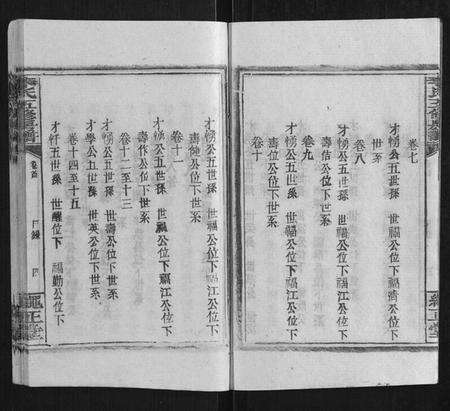 卷七
才㑳公五世孫 世福公位下福濟公位下
世系
卷八
才㑳公五世孫 世福公位下福江公位下
壽佶公位下世系
卷九
才㑳公五世孫 世福公位下福江公位下
壽位公位下世系
卷十
才㑳公五世孫 世福公位下福江公位下
壽位公位下世系
卷十一
才㑳公五世孫 世福公位下福江公位下
壽作公位下世系
卷十二至十三
才㑳公五世孫 世壽公位下世系
才學公五世孫 世英公位下世系
卷十四至十五
才仟五世孫 世雄位下 福勤公位下
李氏五修族譜
卷首
目錄
四